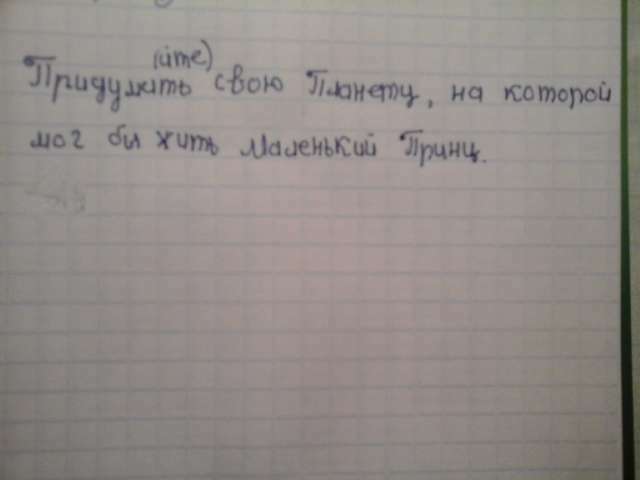 (йте)
Придумать свою Планету, на которой
мог бы жить Маленький Принц.